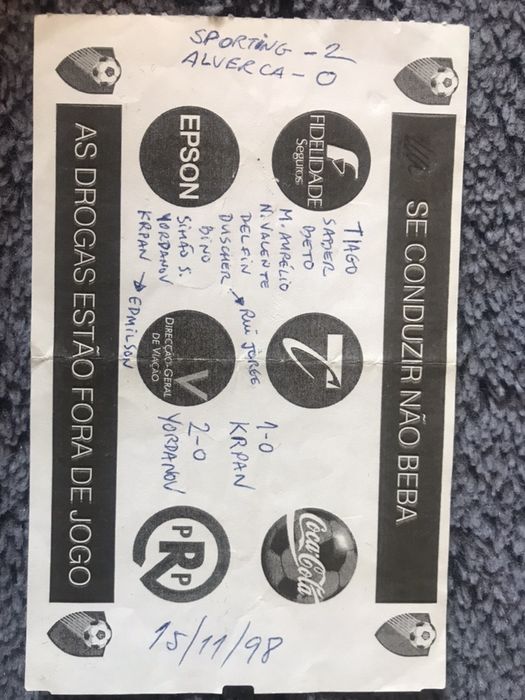 SPORTING - 2
ALVERCA - 0
SE CONDUZIR NÃO BEBA
FIDELIDADE
Seguros
EPSON
TIAGO
SABER
BETO
M. AURÉLIO
N. VALENTE
DELFIN
DUSCHER → RUI JORGE
BINO
SIMÃO S.
YORDANOV
KRPAN → EDMILSON
DIRECÇÃO-GERAL
DE VIAÇÃO
1-0
KRPAN
2-0
YORDANOV
Coca-Cola
PRP
15/11/98
AS DROGAS ESTÃO FORA DE JOGO